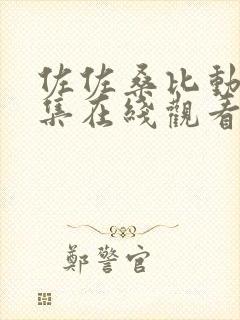 佐佐桑比動
集在綫觀看
鄭警官